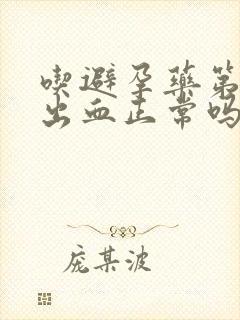 喫避孕藥第
出血正常吗
庞某波